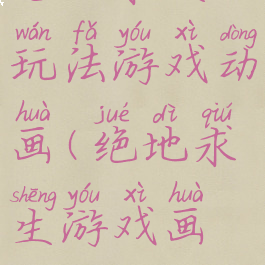 wán fǎ yóu xì dòng
玩法游戏动
huà jué dì qiú
画(绝地求
shēng yóu xì huà
生游戏画